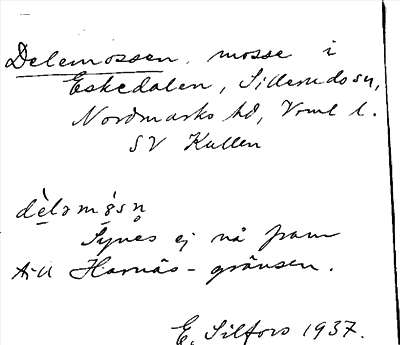 Delemossen, mosse i
Eskedalen, Sillerudssn,
Nordmarks hd, Vrml l.
SV Kullen
dèləmósn̥
Synes ej nå fram
till Harnäs-gränsen.
E. Silfors 1937.